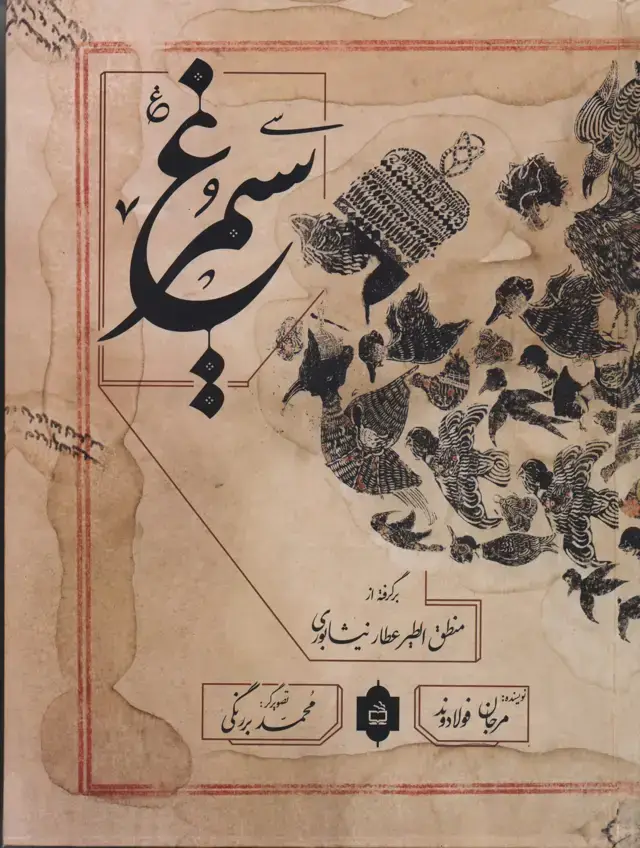 سی
سیمرغ
برگرفته از
منطق الطیر عطار نیشابوری
نویسنده:
مرجان فولادوند
تصویرگر:
محمد بررنگی